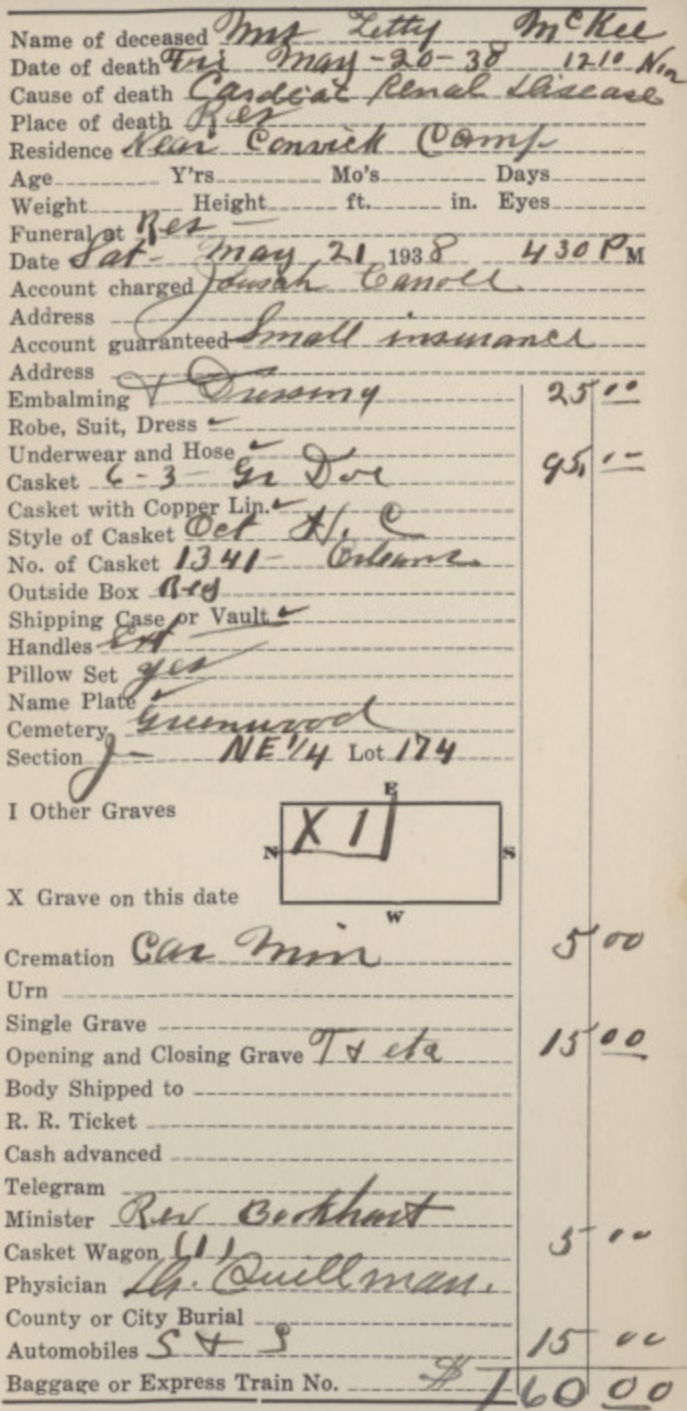 Name of deceased Mrs Letty McKee
Date of death Fri May-20-38 1210 Nn
Cause of death Cardeac Renal Disease
Place of death Res
Residence Near Convick Camp
Age Y'rs Mo's Days
Weight Height ft. in. Eyes
Funeral at Res -
Date Sat- May 21 1938 430 PM
Account charged Carroll
Address
Account guaranteed Small insurance
Address
Embalming & Dressing 25 00
Robe, Suit, Dress ✓
Underwear and Hose ✓
Casket 6-3- Gr Doe 95 00
Casket with Copper Lin. ✓
Style of Casket Oct H. C
No. of Casket 1341- Orleans
Outside Box Reg
Shipping Case or Vault ✓
Handles Ext
Pillow Set yes
Name Plate ✓
Cemetery Greenwood
Section J- NE 1/4 Lot 174
I Other Graves
E
X 1
N S
X Grave on this date
W
Cremation Car Min 5 00
Urn
Single Grave
Opening and Closing Grave T & eta 15 00
Body Shipped to
R. R. Ticket
Cash advanced
Telegram
Minister Rev Borkhart
Casket Wagon (1) 5 00
Physician Dr. Quillman.
County or City Burial
Automobiles S & S 15 00
Baggage or Express Train No. $ 160 00